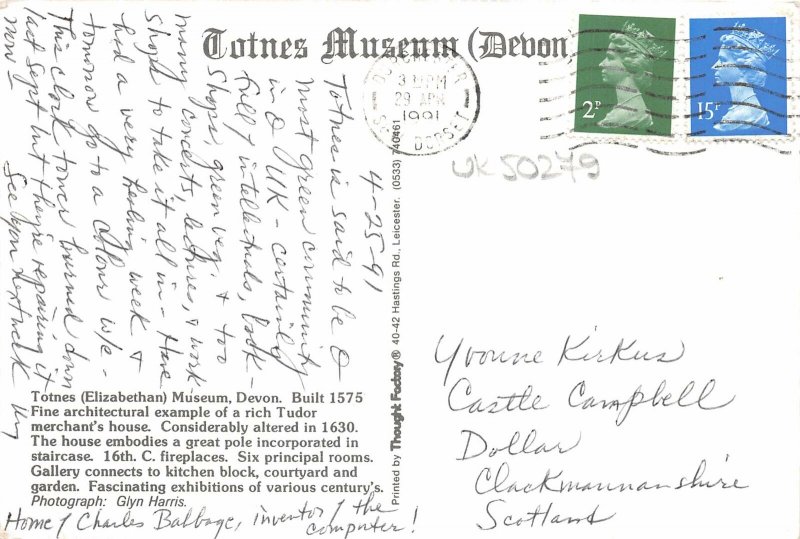 Totnes Museum (Devon)
4-25-91
Totnes is said to be
most green community
in UK - certainly
full of intellectuals, book-
shops, green veg. & too
many concerts, lectures, & work
shops to take it all in - Have
had a very healing week &
tomorrow go to a Colour w/e -
This clock tower burned down
last Sept but they're repairing it
now -
See you next week
Totnes (Elizabethan) Museum, Devon. Built 1575
Fine architectural example of a rich Tudor
merchant's house. Considerably altered in 1630.
The house embodies a great pole incorporated in
staircase. 16th. C. fireplaces. Six principal rooms.
Gallery connects to kitchen block, courtyard and
garden. Fascinating exhibitions of various century's.
Photograph: Glyn Harris.
Home of Charles Babbage, inventor of the
computer!
Printed by Thought Factory® 40-42 Hastings Rd., Leicester. (0533) 740461
29 APR
1991
DORSET
2P
15P
UK50279
Yvonne Kirkus
Castle Campbell
Dollar
Clackmannanshire
Scotland